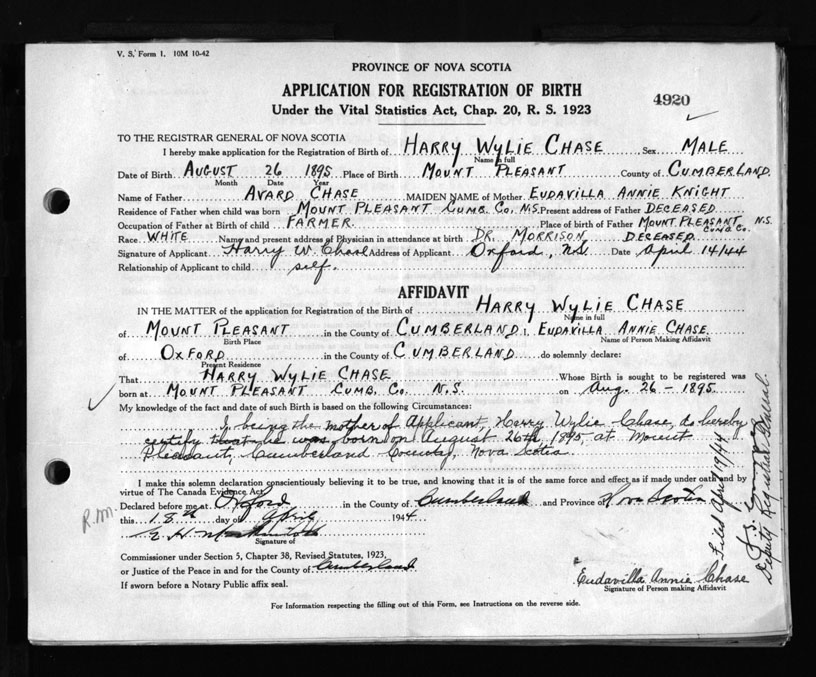 V. S. Form 1. 10M 10-42
PROVINCE OF NOVA SCOTIA
APPLICATION FOR REGISTRATION OF BIRTH
Under the Vital Statistics Act, Chap. 20, R. S. 1923
4920
TO THE REGISTRAR GENERAL OF NOVA SCOTIA
I hereby make application for the Registration of Birth of HARRY WYLIE CHASE Sex MALE
Name in full
Date of Birth AUGUST 26 1895 Place of Birth MOUNT PLEASANT County of CUMBERLAND
Month Date Year
Name of Father AVARD CHASE MAIDEN NAME of Mother EUDAVILLA ANNIE KNIGHT
Residence of Father when child was born MOUNT PLEASANT CUMB. CO. N.S. Present address of Father DECEASED
Occupation of Father at Birth of child FARMER. Place of birth of Father MOUNT PLEASANT CUMB CO. N.S.
Race WHITE Name and present address of Physician in attendance at birth DR. MORRISON, DECEASED
Signature of Applicant Harry W. Chase Address of Applicant Oxford, N.S. Date April 14/44
Relationship of Applicant to child self.
AFFIDAVIT
IN THE MATTER of the application for Registration of the Birth of HARRY WYLIE CHASE
Name in full
of MOUNT PLEASANT in the County of CUMBERLAND I, EUDAVILLA ANNIE CHASE
Birth Place Name of Person Making Affidavit
of OXFORD in the County of CUMBERLAND do solemnly declare:
Present Residence
That HARRY WYLIE CHASE Whose Birth is sought to be registered was
born at MOUNT PLEASANT CUMB. CO. N.S. on Aug. 26 - 1895
My knowledge of the fact and date of such Birth is based on the following Circumstances:
I being the mother of Applicant, Harry Wylie Chase, do hereby
certify that he was born on August 26th, 1895, at Mount
Pleasant, Cumberland County, Nova Scotia.
I make this solemn declaration conscientiously believing it to be true, and knowing that it is of the same force and effect as if made under oath and by
virtue of The Canada Evidence Act.
Declared before me at Oxford in the County of Cumberland and Province of Nova Scotia
R.M.
this 18th day of April 1944
Signature of
Commissioner under Section 5, Chapter 38, Revised Statutes, 1923,
or Justice of the Peace in and for the County of Cumberland
If sworn before a Notary Public affix seal.
Eudavilla Annie Chase
Signature of Person making Affidavit
For Information respecting the filling out of this Form, see Instructions on the reverse side.
Filed April 19/44
Deputy Registrar General